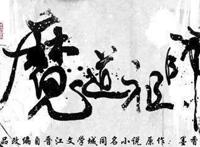 魔道祖师
品改编自晋江文学城同名小说 原作：墨香